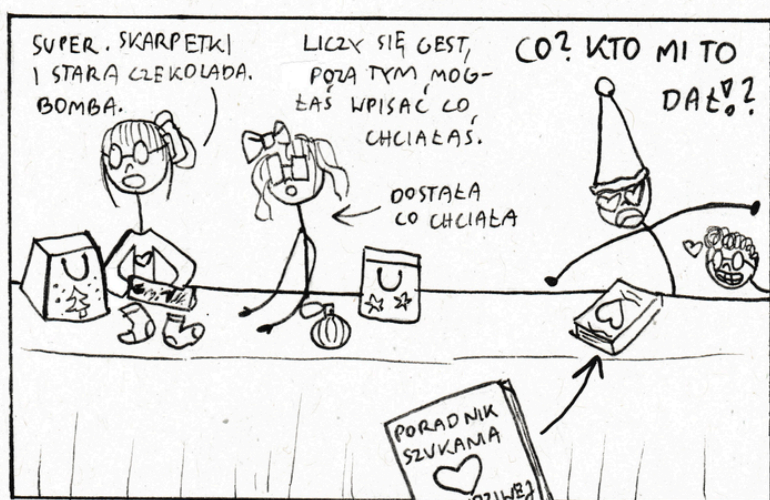 SUPER. SKARPETKI
I STARA CZEKOLADA.
BOMBA.
LICZY SIĘ GEST,
POZA TYM, MOG-
ŁAŚ WPISAĆ CO
CHCIAŁAŚ.
DOSTAŁA
CO CHCIAŁA
CO? KTO MI TO
DAŁ!?
PORADNIK
SZUKANIA